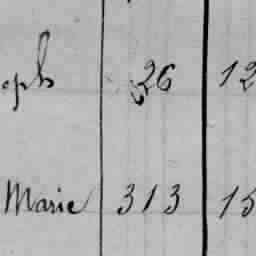 oph 26 12
Marie 313 15